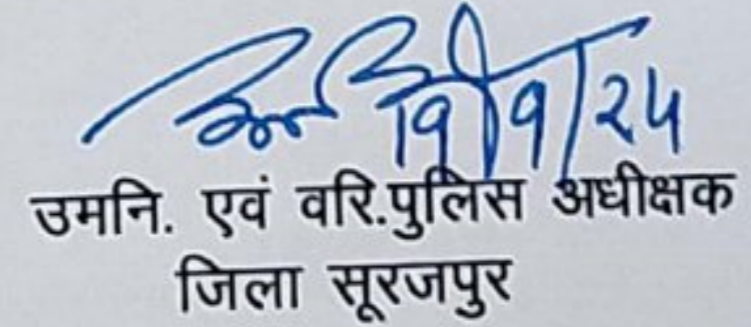 19/9/24
उमनि. एवं वरि.पुलिस अधीक्षक
जिला सूरजपुर